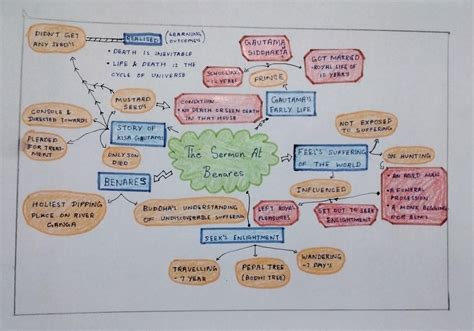 DIDN'T GET
ANY SEED'S
REALISED
(LEARNING
OUTCOMES)
• DEATH IS INEVITABLE
• LIFE & DEATH IS THE
CYCLE OF UNIVERSE
GAUTAMA
SIDDHARTA
SCHOOLING
-12 YEARS
PRINCE
GOT MARRIED
-ROYAL LIFE OF
10 YEARS
MUSTARD
SEED'S
CONDITION
-NO DEATH OR SEEN
IN THAT HOUSE
GAUTAMA'S
EARLY LIFE
CONSOLE &
DIRECTED TOWARDS
STORY OF
KISA GAUTAMI
NOT EXPOSED
TO SUFFERING
PLEADED
FOR TREAT-
MENT
ONLY SON
DIED
The Sermon At
Benares
FEEL'S SUFFERING
OF THE WORLD
ON HUNTING
BENARES
INFLUENCED
• AN AGED MAN
• A FUNERAL
PROCESSION
• A MONK BEGGING
FOR ALMS
HOLIEST DIPPING
PLACE ON RIVER
GANGA
BUDDHA'S UNDERSTANDING
OF UNDISCOVERABLE SUFFERING
LEFT ROYAL
PLEASURES
GET OUT TO SEEK
ENLIGHTMENT
SEEK'S ENLIGHTMENT
TRAVELLING
-7 YEAR
PEPAL TREE
(BODHI TREE)
WANDERING
-7 DAY'S